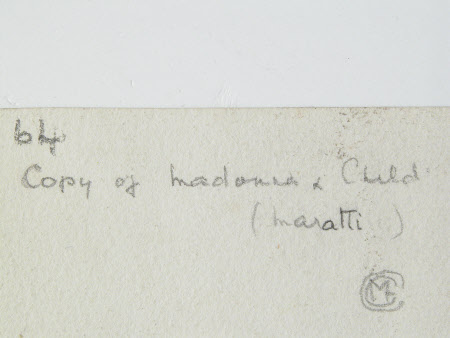 64
Copy of Madonna & Child
(Maratti)